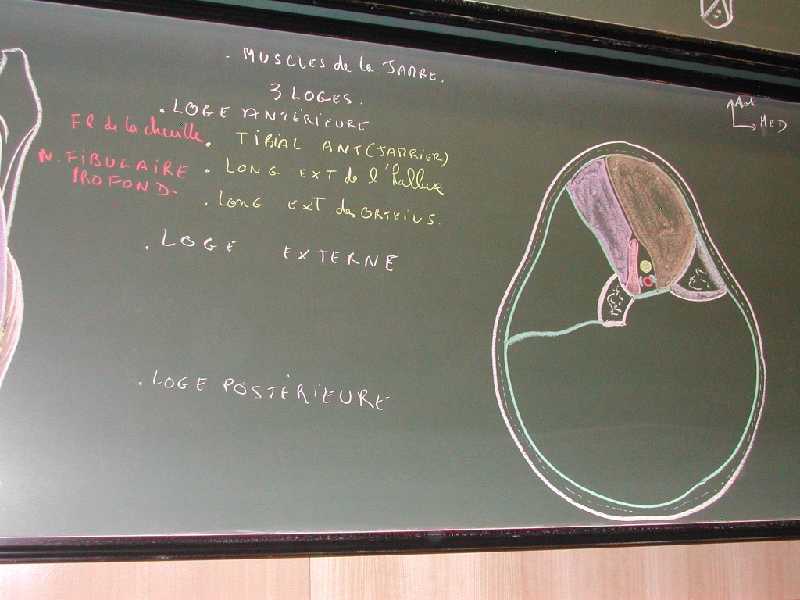 . MUSCLES de la JAMBE.
3 LOGES.
. LOGE ANTÉRIEURE
FR de la cheville
. TIBIAL ANT (JAMBIER)
N. FIBULAIRE PROFOND.
. LONG EXT de l'hallux
. Long EXT des ORTEILS.
. LOGE EXTERNE
. LOGE POSTÉRIEURE
Ant
MED